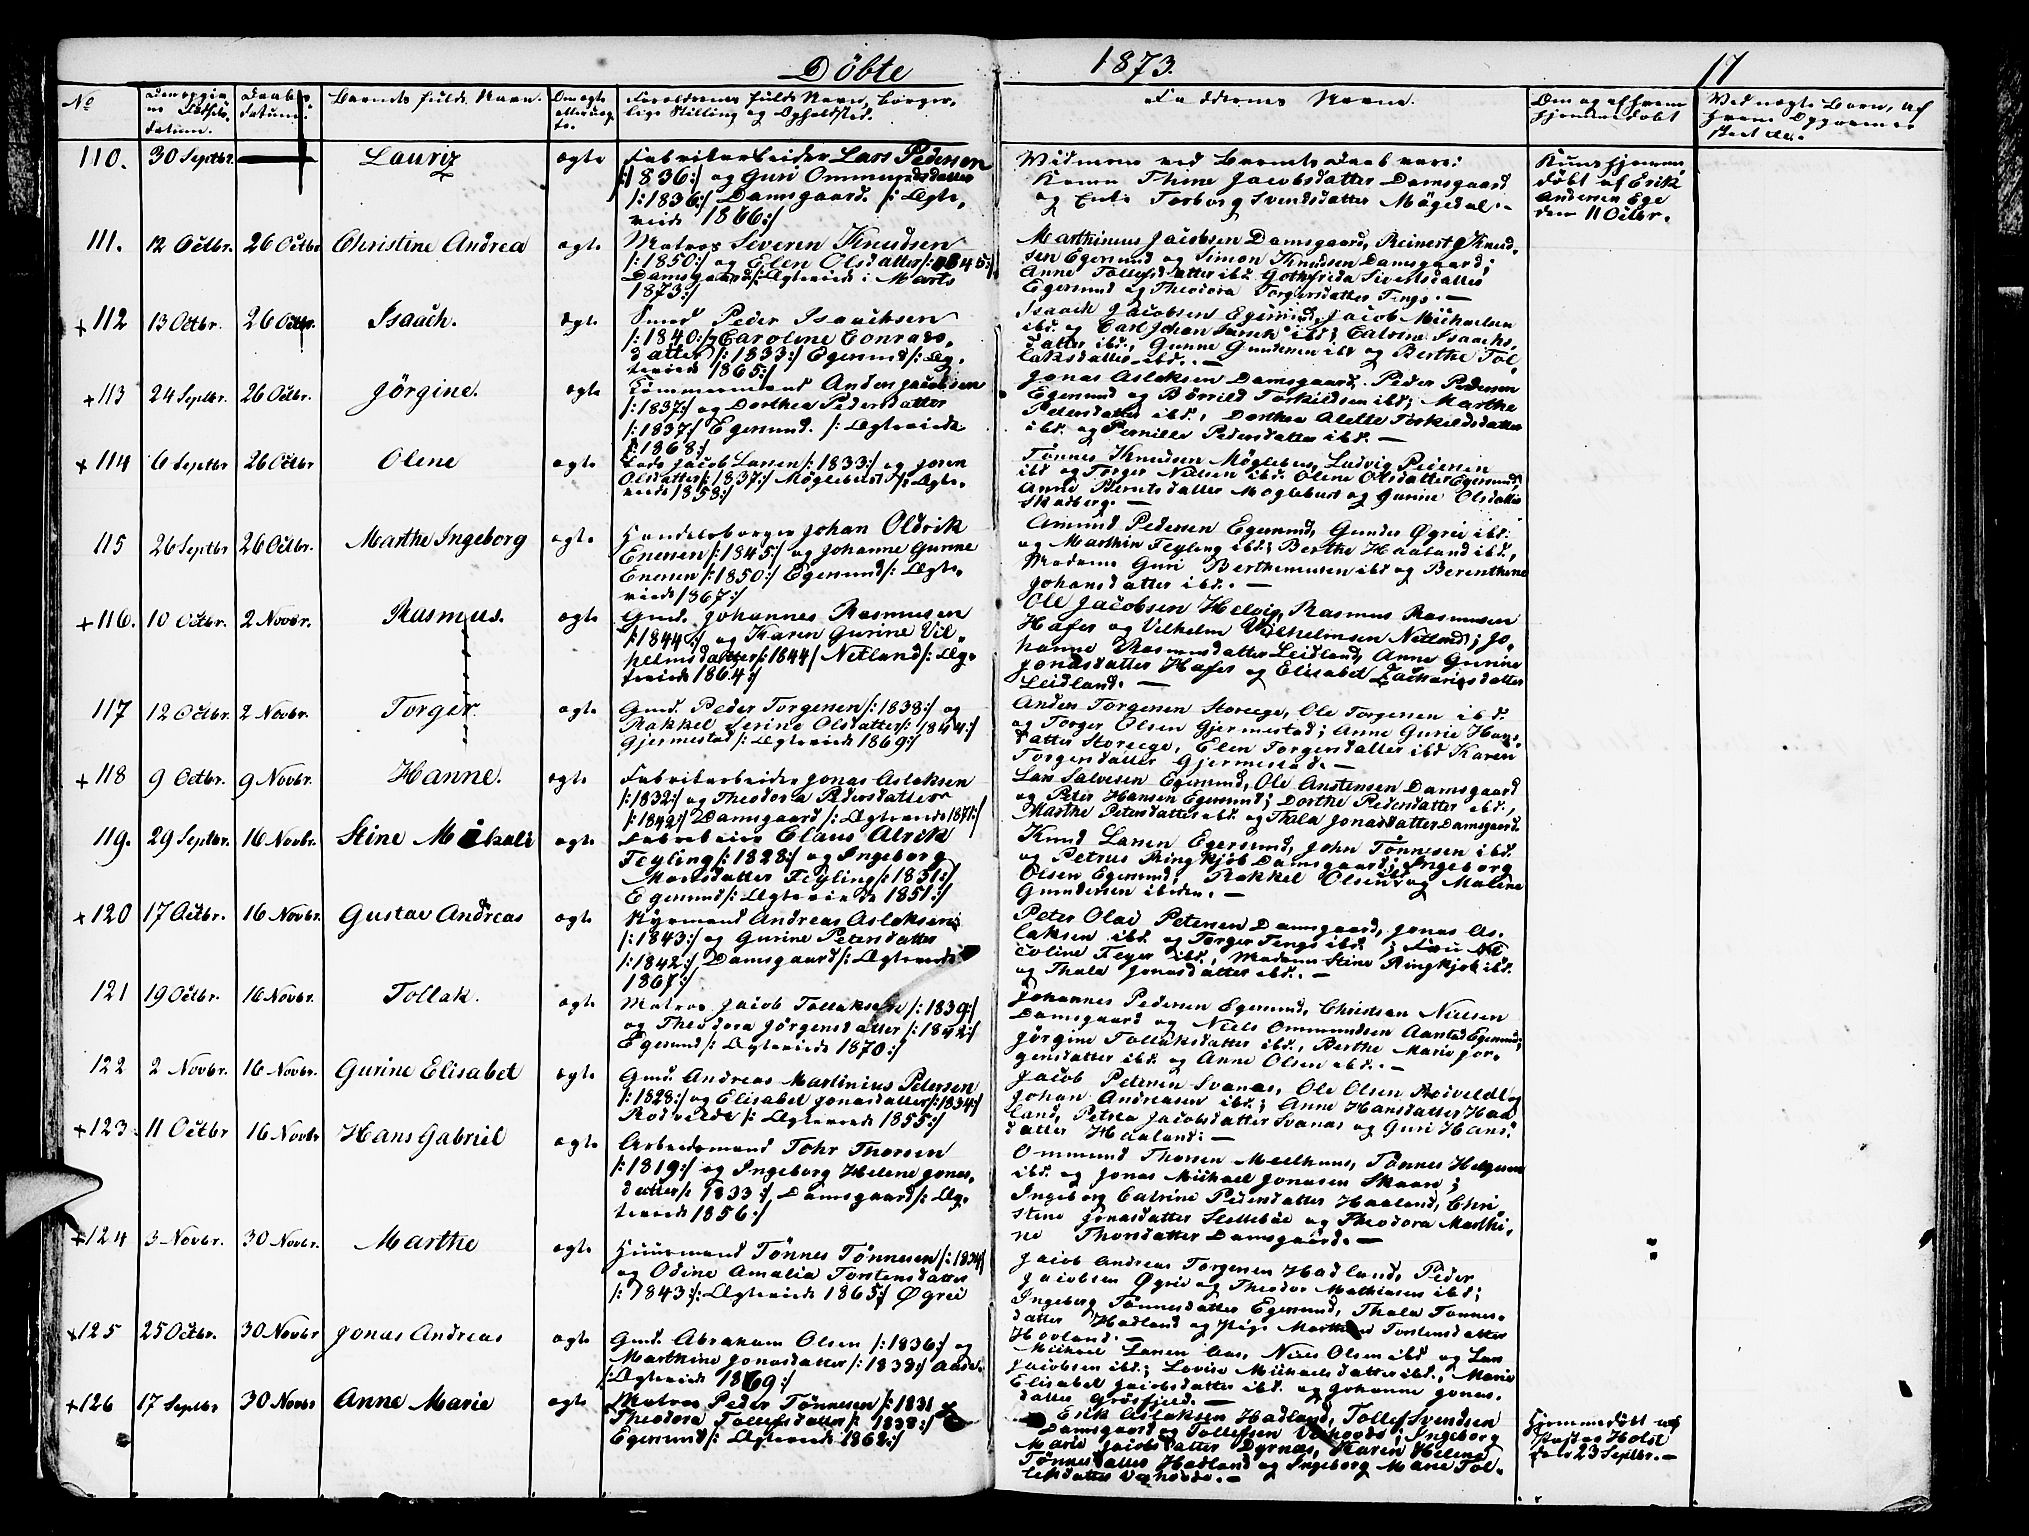 Döbte
1873.
17
No
Barnets fulde Navn.
Forældrenes fulde Navn, borger-
lige Stilling og Opholdsted.
Faddernes Navne.
110. 30 Septbr. Lauritz ægte
Fabrikarbeider Lars Pedersen
/:1836:/ og Guri Ommundsdatter
/:1836:/ Damsgaard. /: Ægte-
viede 1866:/
Vidnerne ved Barnets Daab vare:
Konen Thine Jacobsdatter Damsgaard
og Enke Torborg Svendsdatter Mögedal.-
Kuns hjemme-
döbt af Erik
Andersen Ege
den 11 Octbr.
111. 12 Octbr. 26 Octbr Christine Andrea ægte
Matros Severen Knudsen
/:1850:/ og Elen Olsdatter /:1845:/
Damsgaard /: Ægteviede i Marts
1873:/
Marthinus Jacobsen Damsgaard, Reinert Knud-
sen Egersund og Simon Knudsen Damsgaard;
Anne Tollefsdatter ibd. Gothfrida Sivertsdatter
Egersund og Theodora Torgersdatter Tengs.-
+ 112 13 Octbr. 26 Octbr. Isaach. ægte
Smed Peder Isaachsen
/:1840:/ Caroline Conrads-
datter /:1833:/ Egersund /: Æg-
teviede 1865:/
Isaach Jacobsen Egersund, Jacob Michaelsen
ibd. og Carl Johan ibd; Catrine Isaachs-
datter ibd., Gunne Gundersen ibd og Berthe Tol-
laksdatter ibd.-
+ 113 24 Septbr. 26 Octbr. Jörgine. ægte
Tömmermand Anders Jacobsen
/:1837:/ og Dorthea Pedersdatter
/:1837/ Egersund. /: Ægteviede
1868:/
Jonas Aslaksen Damsgaard, Peder Pedersen
Egersund og Börrild Torkildsen ibd; Marthe
Petersdatter ibd., Dorthea Alette Torkildsdatter
ibd. og Pernille Pedersdatter ibd.-
+ 114 6 Septbr 26 Octbr Olene ægte
Lods Jacob Larsen /:1833:/ og Joren
Olsdatter /:1837:/ Möglebust /: Ægte-
viede 1858:/
Tönnes Knudsen Möglebust, Ludvig Petersen
ibd og Torger Nielsen ibd. Olene Olsdatter Egersund,
Anne Berntsdatter Möglebust og Gurine Olsdatter
Skadberg.-
115 26 Septbr 26 Octbr. Marthe Ingeborg ægte
Handelsborger Johan Oldrik
Enersen /:1845:/ og Johanne Gunne
Enersen /:1850:/ Egersund /: Ægte-
viede 1867:/
Amund Pedersen Egersund, Gunder Øgrei ibd.
og Marthin Feyling ibd; Berthe Haaland ibd.,
Madame Guri Berthemusen ibd og Berenthine
Johansdatter ibd.-
+ 116. 10 Octbr. 2 Novbr. Rasmus. ægte
Gmd. Johannes Rasmussen
/:1844:/ og Karen Gurine Vil-
helmsdatter /:1844/ Netland /: Æg-
teviede 1864:/
Ole Jacobsen Helvig, Rasmus Rasmussen
Hafer og Vilhelm Vilhelmsen Netland; Jo-
hanne Rasmusdatter Leidland, Anne Gurine
Jonasdatter Hafer og Elisabet Zachariasdatter
Leidland.-
117 12 Octbr. 2 Novbr. Torger ægte
Gmd. Peder Torgersen /:1838:/ og
Rakkel Serine Olsdatter /:1844:/
Gjermestad /: Ægteviede 1869:/
Anders Torgersen Storeege, Ole Torgersen ibd.
og Torger Olsen Gjermestad; Anne Gurie Hans-
datter Storeege, Elen Torgersdatter ibd Karen
Torgersdatter Gjermestad.-
+ 118 9 Octbr. 9 Novbr. Hanne. ægte
Fabrikarbeider Jonas Aslaksen
/:1832:/ og Theodora Pedersdatter
/:1842:/ Damsgaard /: Ægteviede 1871:/
Lars Salvesen Egersund, Ole Anstensen Damsgaard
og Peter Hansen Egersund; Dorthe Pedersdatter ibd.,
Marthe Petersdatter ibd og Thala Jonasdatter Damsgaard.
119. 29 Septbr. 16 Novbr. Stine Mikale ægte
Claus Alrik
Feyling /:1828:/ og Ingeborg
Marsdatter Feyling /:1831:/
Egersund /: Ægteviede 1851:/
Knud Larsen Egersund, John Tönnesen ibd.
og Petrus Ringkjöb Damsgaard; Ingeborg
Olsen Egersund, Rakkel Olsen og Maline
Gundersen ibiden.-
+ 120 17 Octbr. 16 Novbr. Gustav Andreas ægte
Styrmand Andreas Aslaksen
/:1843:/ og Gurine Petersdatter
/:1842:/ Damsgaard /: Ægteviede
1867:/
Peter Olai Petersen Damsgaard, Jonas As-
laksen ibd. og Torger Tengs ibd.; Fru Ni-
coline Feyer ibd., Madame Stine Ringkjöb ibd.
og Thala Jonasdatter ibd.-
121 19 Octbr. 16 Novbr. Tollak. ægte
Matros Jacob Tollaksen /:1839:/
og Theodora Jörgensdatter /:1842:/
Egersund /: Ægteviede 1870:/
Johannes Pedersen Egersund, Christian Nielsen
Damsgaard og Niels Ommundsen Aarstad Egersund;
Jörgine Tollaksdatter ibd., Berthe Marie Jör-
gensdatter ibd. og Anne Olsen ibd.-
122 2 Novbr. 16 Novbr. Gurine Elisabet ægte
Gmd. Andreas Martinius Petersen
/:1828:/ og Elisabet Jonasdatter /:1834:/
Rodvelde /: Ægteviede 1855:/
Jacob Petersen Svanas, Ole Olsen Roiveldt og
Johan Andreasen ibd.; Anne Hansdatter Haa-
land, Petrea Jacobsdatter Svanas og Guri Hans-
datter Haaland.-
+ 123 11 Octbr 16 Novbr Hans Gabriel ægte
Arbeidsmand Tohr Thorsen
/:1819:/ og Ingeborg Helene Jonas-
datter /:1833:/ Damsgaard /: Æg-
teviede 1856:/
Ommund Thorsen Meelhuus, Tönnes Helgesen
ibd. og Jonas Michael Jonassen Skaare;
Ingeborg Catrine Pedersdatter Haaland, Chri-
stine Jonasdatter Sletteböe og Theodora Marthi-
ne Thorsdatter Damsgaard.-
+ 124 3 Novbr. 30 Novbr. Marthe ægte
Huusmand Tönnes Tönnesen /:1834/
og Odine Amalia Torstensdatter
/:1843:/ /: Ægteviede 1865:/ Øgrei
Jacob Andreas Torgersen Hadland, Peder
Jacobsen Øgrei og Theodor Mathiasen ibd;
Ingeborg Tönnesdatter Egersund, Thala Tönnes-
datter Hadland og Pige Marthe Torstensdatter
Hovland.-
+ 125 25 Octbr. 30 Novbr Jonas Andreas ægte
Gmd. Abraham Olsen /:1836:/ og
Marthine Jonasdatter /:1838:/ Aase.
/: Ægteviede 1869:/
Michael Larsen Aas, Niels Olsen ibd og Lars
Jacobsen ibd; Lovise Michaelsdatter ibd., Marie
Elisabet Jacobsdatter ibd. og Johanne Jonas-
datter Grösfjeld.-
+ 126 17 Septbr 30 Novbr Anne Marie ægte
Matros Peder Tönnesen /:1831
Theodora Tollefsdatter /:1838:/
Egersund /: Ægteviede 1862:/
Erik Aslaksen Hadland, Tollef Svendsen
Damsgaard og Tollefsen Vahoods; Ingeborg
Marie Jacobsdatter Dyrnæs, Karen Helene
Tönnesdatter Hadland og Ingeborg Marie Tol-
lefsdatter Vahoods.-
Hjemmedöbt af
Pastor Holst
den 23 Septbr.-